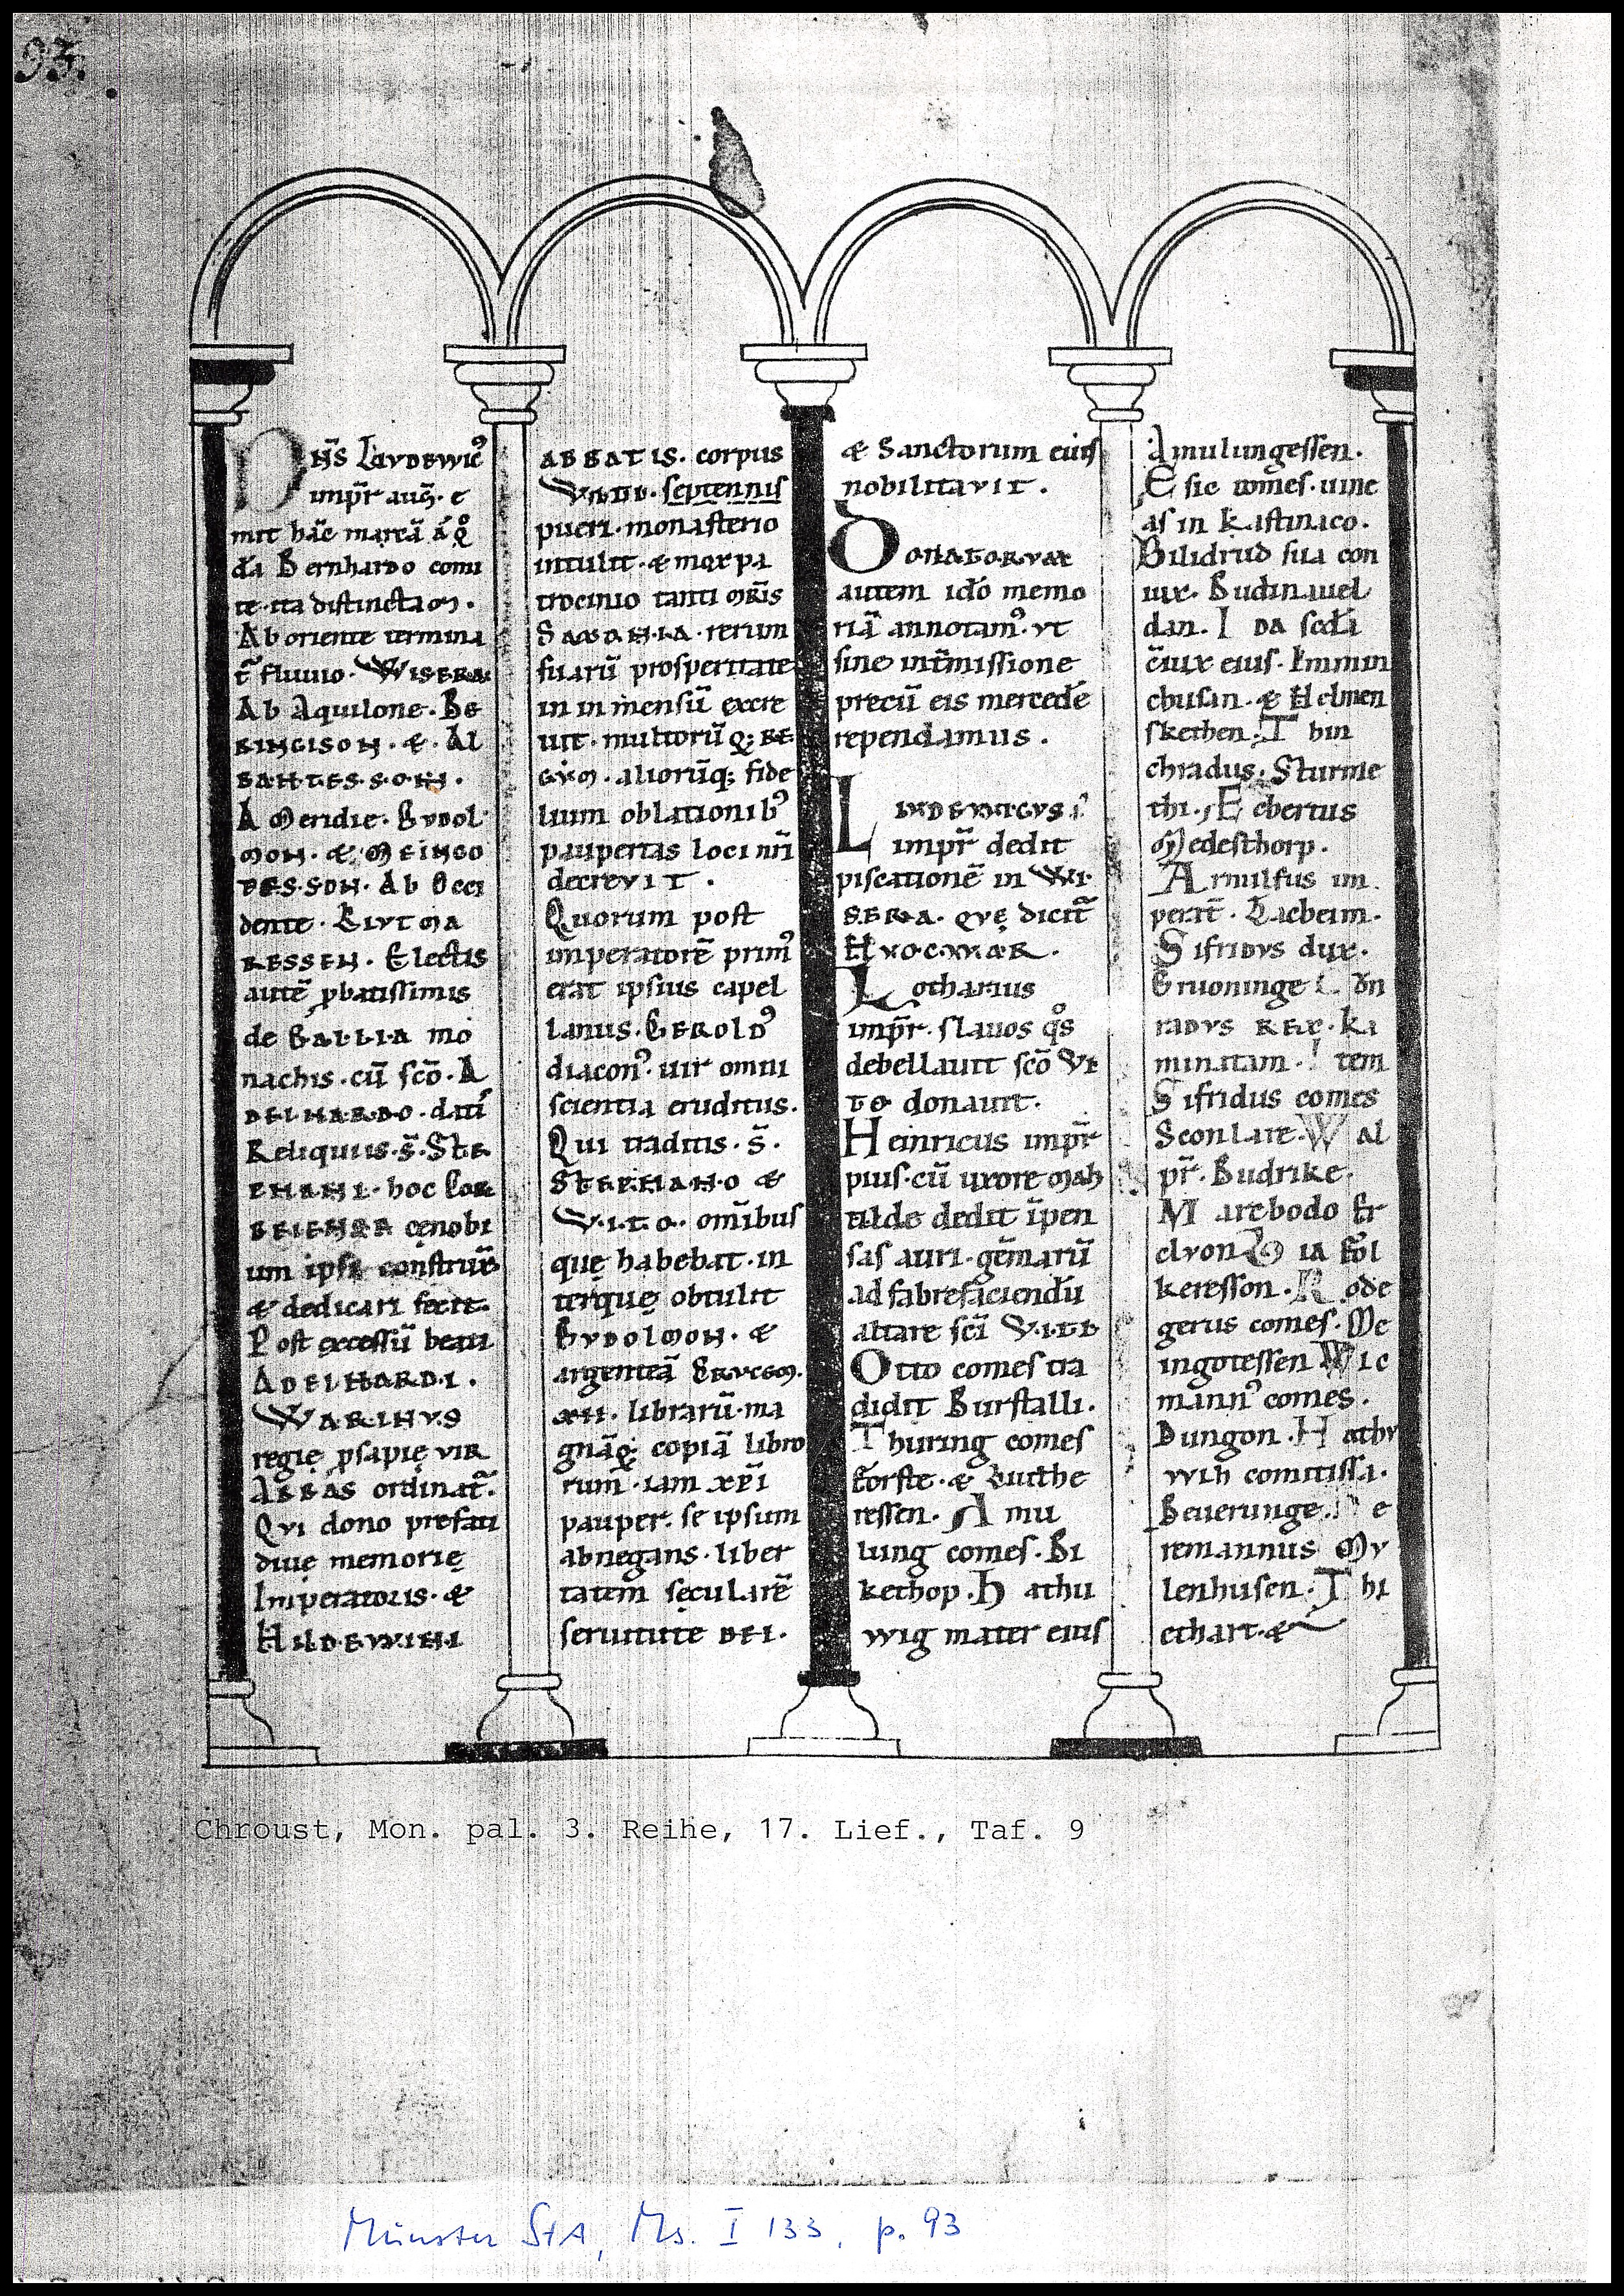 93.
DN̄S LAVDEWICꝰ
imp̄r aug̃. e
mit hãc marcã á q̊
dã Bernhardo comi
te ita distinctam.
Ab oriente termina
t̃ fluuio. WISERA.
Ab Aquilone. BE
RINGISON. & AL
BANTES.SON.
A Meridie. GVDOL
MON. & MEINGO
DES.SON. Ab Occi
dente. LIVTMA
RESSEN. Electis
autẽ ꝓbatissimis
de GALLIA mo
nachis. cũ scõ. A
DELHARDO. datí
Reliquiis. s̃. STE
PHANI. hoc COR
BEIENSE cęnobi
um ipse construẽ
& dedicari fecit.
Post excessũ beati
ADELHARDI.
WARINVS
regię ꝓsapię VIR
ABBAS ordinat̃.
QVI dono prefati
diuę memorię
Imperatoris. &
HILDEWINI
ABBATIS. corpus
VITI. septennis
pueri. monasterio
intulit. & mox pa
trocinio tanti mr̃is
SAXONIA. rerum
suarũ prosperitate
in inmensũ excre
uit. multorũ q; RE
GVM. aliorũq; fide
lium oblationibꝰ
paupertas loci nr̃i
decreVIT.
Quorum post
imperatorẽ primꝰ
erat ipsius capel
lanus. GEROLDꝰ
diaconꝰ. uir omni
scientia eruditus.
Qui traditis. s̃.
STEPHANO &
V.I.T.O. omĩbus
quę habebat. in
terquę obtulit
GVDOLMON. &
argenteã CRVCEM.
XII. librarũ. ma
gnãq; copiã libro
rum. iam xp̃i
pauper. se ipsum
abnegans. liber
tatem sęcularẽ
seruitute DEI.
& Sanctorum eius
nobilitaVIT.
DONATORVM
autem idõ memo
riã annotamꝰ. vt
sine intm̃issione
precũ eis mercedẽ
rependamus.
LVDEWICVS
imp̄r dedit
piscationẽ in WI
SERA. QVĘ dicit̃
HVOCWAR.
Lotharius
imp̄r. slauos q̊s
debellauit scõ VI
TO donauit.
Heinricus imp̄r
pius. cũ uxore Mah
tilde dedit ĩpen
sas auri. gem̃arũ
ad fabrefaciendũ
altare sc̃i V.I.TI
Otto comes tra
didit Burstalli.
Thuring comes
Forste. & Luithe
ressen. Amu
lung comes. Bi
kethop. Hathu
wig mater eius
Amulungessen.
Esic comes. uine
as in Kastinaco.
Bilidrud sua con
iux. Budinauel
dan. IDA scdã
cõiux eius. Immin
chusan. & Helmen
skethen. Thin
chradus. Sturme
thi. Ecbertus
Medesthorp.
Arnulfus im
perat̃. Lacheim.
SifridVS dux.
Gruoninge. Côn
radVS REX. Ka
minatam. Item
Sifridus comes
Sconlare. Wal
pr̄. Budrike.
Marcbodo Er
clVon. Oia Fol
keresson. Rode
gerus comes. Me
ingotessen Wic
mannꝰ comes.
Dungon. HathV
wih comitissa.
Beuerunge. De
remannus MV
lenhusen. Thi
ethart. &
Chroust, Mon. pal. 3. Reihe, 17. Lief., Taf. 9
Münster StA, Ms. I 133, p. 93